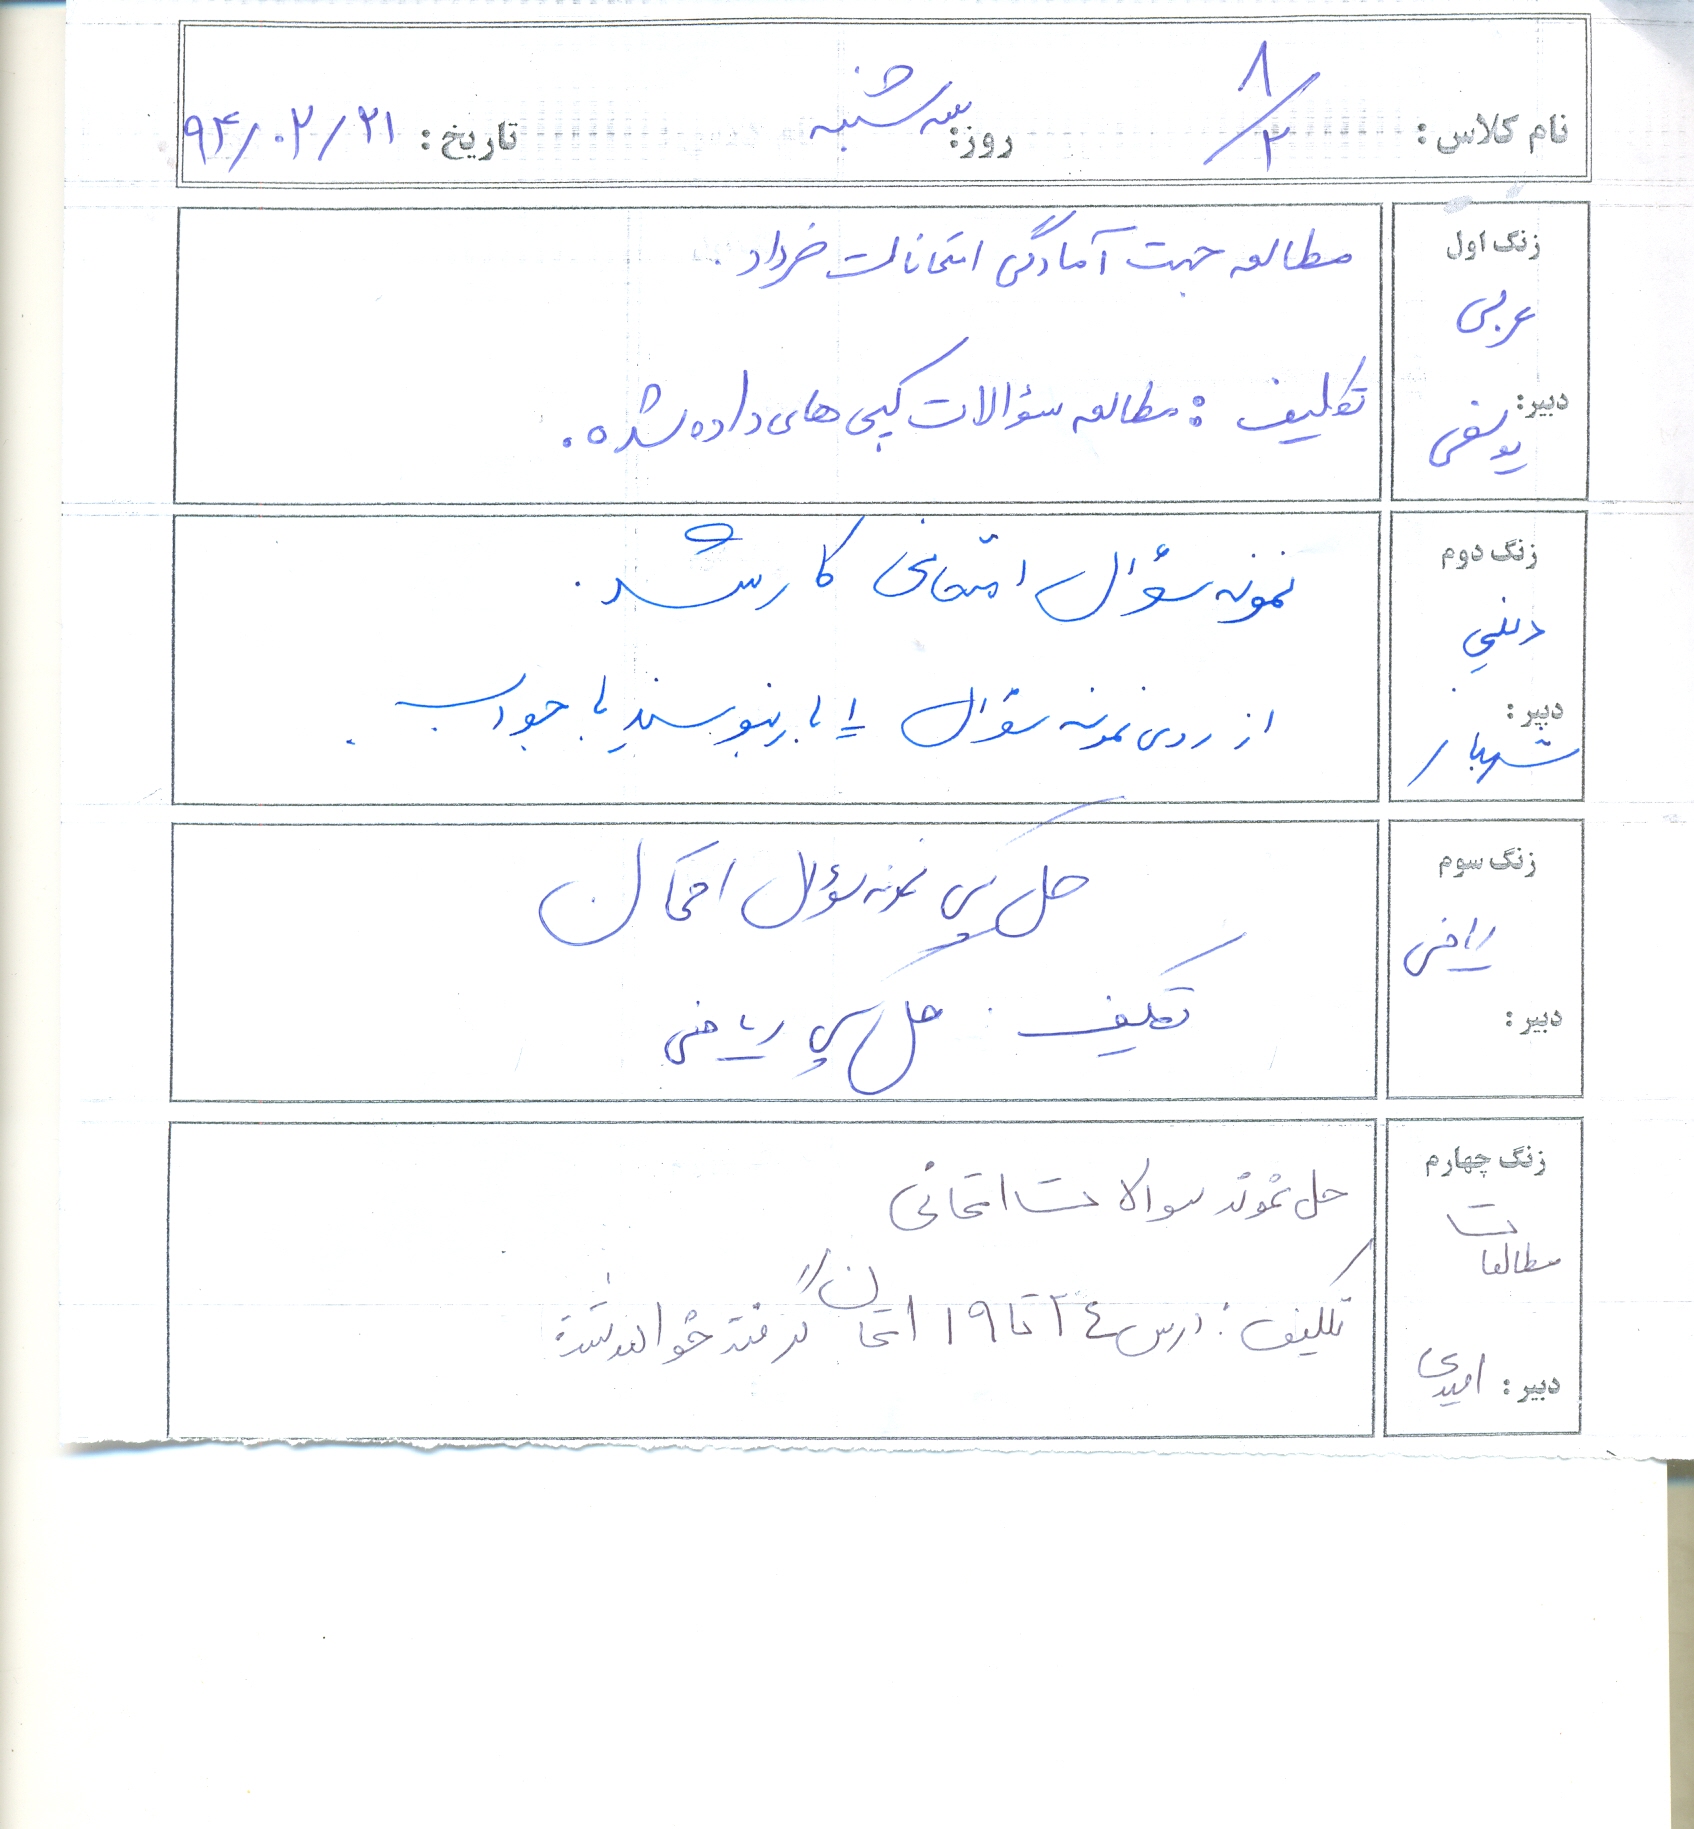 نام کلاس : ۸/۲ روز: سه شنبه تاریخ : ۹۴/۰۲/۲۱
زنگ اول
عربی
دبیر:
یوسفی
مطالعه جهت آمادگی امتحانات خرداد .
تکلیف : مطالعه سؤالات کپی های داده شده .
زنگ دوم
دینی
دبیر :
شهباز
نمونه سؤال امتحانی کار شد .
از روی نمونه سؤال ۱ بار بنویسند با جواب .
زنگ سوم
ریاضی
دبیر :
حل پلی نمونه سؤال امتحان
تکلیف . حل پلی ریاضی
زنگ چهارم
مطالعات
دبیر : امیدی
حل نمونه سوالات امتحانی
تکلیف : درس ۲٤ تا ۱۹ امتحان گرفته خواهد شد